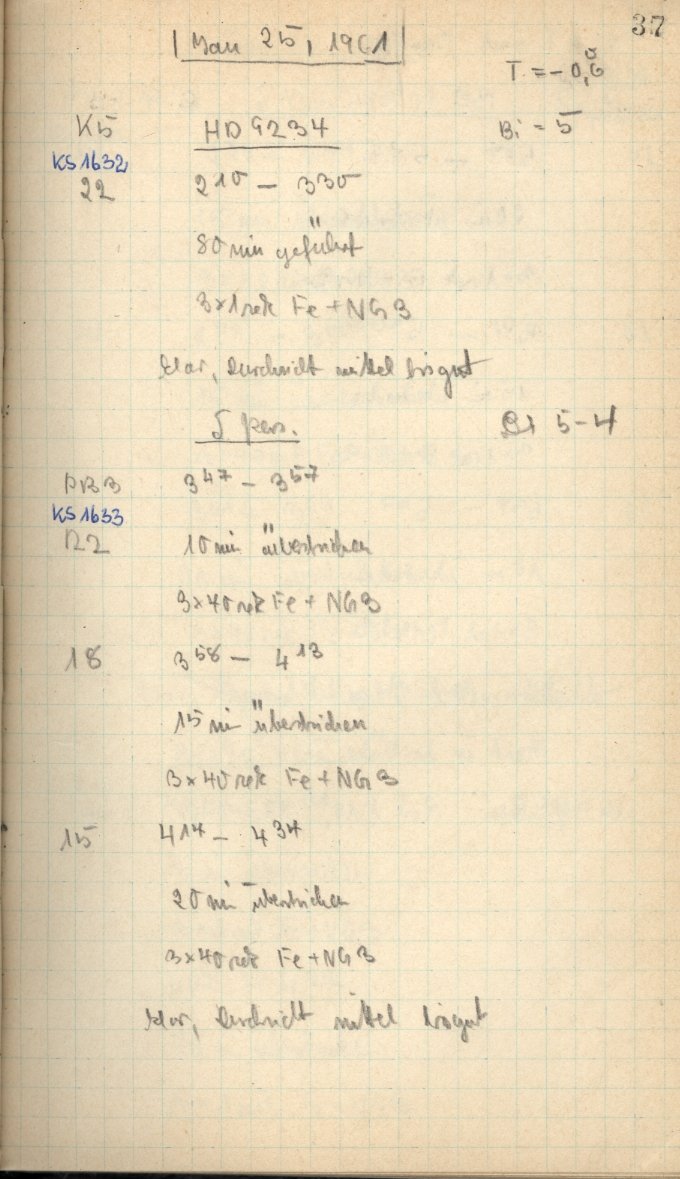 37
Jan 25, 1961
T = -0,6°
K5 HD 9234 Bi = 5
KS 1632
22 2 10 - 3 30
80 min geführt
3×1 sek Fe + NG 3
klar, Durchsicht mittel bis gut
Pers. Bi 5-4
3 47 - 3 57
KS 1633
10 min überstrichen
3×40 sek Fe + NG 3
18 3 58 - 4 13
15 min überstrichen
3×40 sek Fe + NG 3
15 4 14 - 4 34
20 min überstrichen
3×40 sek Fe + NG 3
klar, Durchsicht mittel bis gut